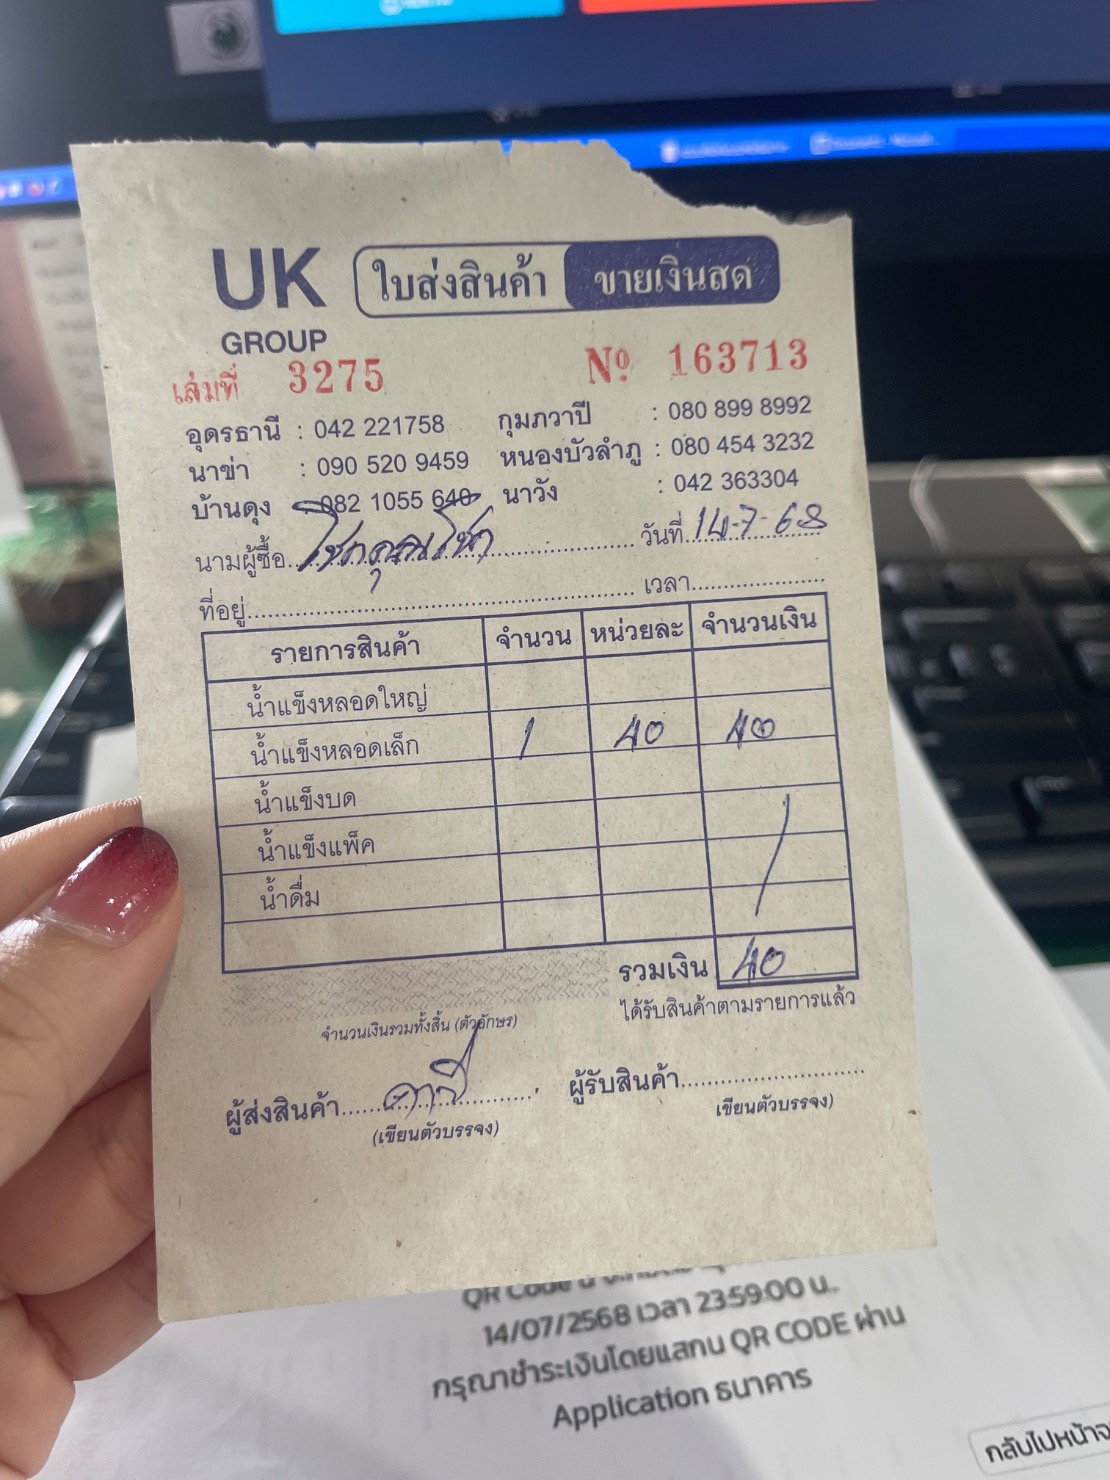 UK
GROUP
ใบส่งสินค้า ขายเงินสด
เล่มที่ 3275 № 163713
อุดรธานี : 042 221758 กุมภวาปี : 080 899 8992
นาข่า : 090 520 9459 หนองบัวลำภู : 080 454 3232
บ้านดุง : 082 1055 640 นาวัง : 042 363304
นามผู้ซื้อ วันที่ 14-7-68
ที่อยู่ เวลา
รายการสินค้า จำนวน หน่วยละ จำนวนเงิน
น้ำแข็งหลอดใหญ่
น้ำแข็งหลอดเล็ก 1 40 40
น้ำแข็งบด
น้ำแข็งแพ็ค
น้ำดื่ม
รวมเงิน 40
ได้รับสินค้าตามรายการแล้ว
จำนวนเงินรวมทั้งสิ้น (ตัวอักษร)
ผู้ส่งสินค้า ผู้รับสินค้า
(เขียนตัวบรรจง) เขียนตัวบรรจง)
QR Code
14/07/2568 เวลา 23:59:00 น..
กรุณาชำระเงินโดยแสกน QR CODE ผ่าน
Application ธนาคาร
กลับไปหน้า